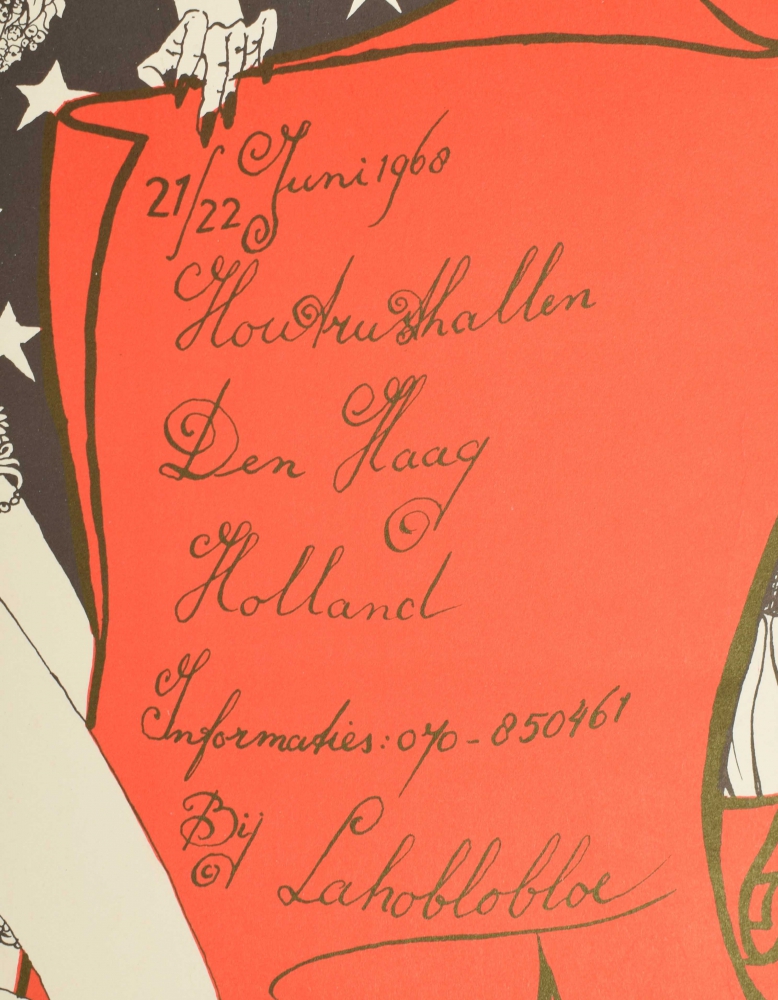 21/22 Juni 1968
Houtrusthallen
Den Haag
Holland
Informaties: 070-850461
Bij
Lahoblobloe